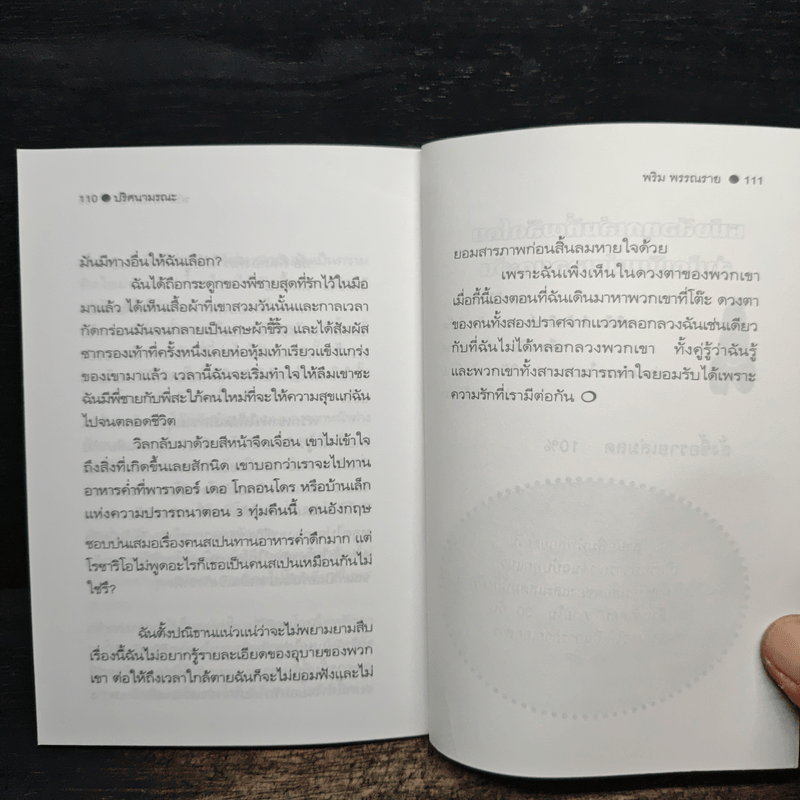 110 ● ปริศนามรณะ
มันมีทางอื่นให้ฉันเลือก?
ฉันได้ถือกระดูกของพี่ชายสุดที่รักไว้ในมือ
มาแล้ว ได้เห็นเสื้อผ้าที่เขาสวมวันนั้นและกาลเวลา
กัดกร่อนมันจนกลายเป็นเศษผ้าขี้ริ้ว และได้สัมผัส
ซากรองเท้าที่ครั้งหนึ่งเคยห่อหุ้มเท้าเรียวแข็งแกร่ง
ของเขามาแล้ว เวลานี้ฉันจะเริ่มทำใจให้ลืมเขาซะ
ฉันมีพี่ชายกับพี่สะใภ้คนใหม่ที่จะให้ความสุขแก่ฉัน
ไปจนตลอดชีวิต
วิลกลับมาด้วยสีหน้าจืดเจื่อน เขาไม่เข้าใจ
ถึงสิ่งที่เกิดขึ้นเลยสักนิด เขาบอกว่าเราจะไปทาน
อาหารค่ำที่พาราดอร์ เดอ โกลอนโดร หรือบ้านเล็ก
แห่งความปรารถนาตอน 3 ทุ่มคืนนี้ คนอังกฤษ
ชอบบ่นเสมอเรื่องคนสเปนทานอาหารค่ำดึกมาก แต่
โรซาริโอไม่พูดอะไรก็เธอเป็นคนสเปนเหมือนกันไม่
ใช่รึ?
ฉันตั้งปณิธานแน่วแน่ว่าจะไม่พยามยามสืบ
เรื่องนี้ฉันไม่อยากรู้รายละเอียดของอุบายของพวก
เขา ต่อให้ถึงเวลาใกล้ตายฉันก็จะไม่ยอมฟังและไม่
พริม พรรณราย ● 111
ยอมสารภาพก่อนสิ้นลมหายใจด้วย
เพราะฉันเพิ่งเห็นในดวงตาของพวกเขา
เมื่อกี้นี้เองตอนที่ฉันเดินมาหาพวกเขาที่โต๊ะ ดวงตา
ของคนทั้งสองปราศจากแววหลอกลวงฉันเช่นเดียว
กับที่ฉันไม่ได้หลอกลวงพวกเขา ทั้งคู่รู้ว่าฉันรู้
และพวกเขาทั้งสามสามารถทำใจยอมรับได้เพราะ
ความรักที่เรามีต่อกัน